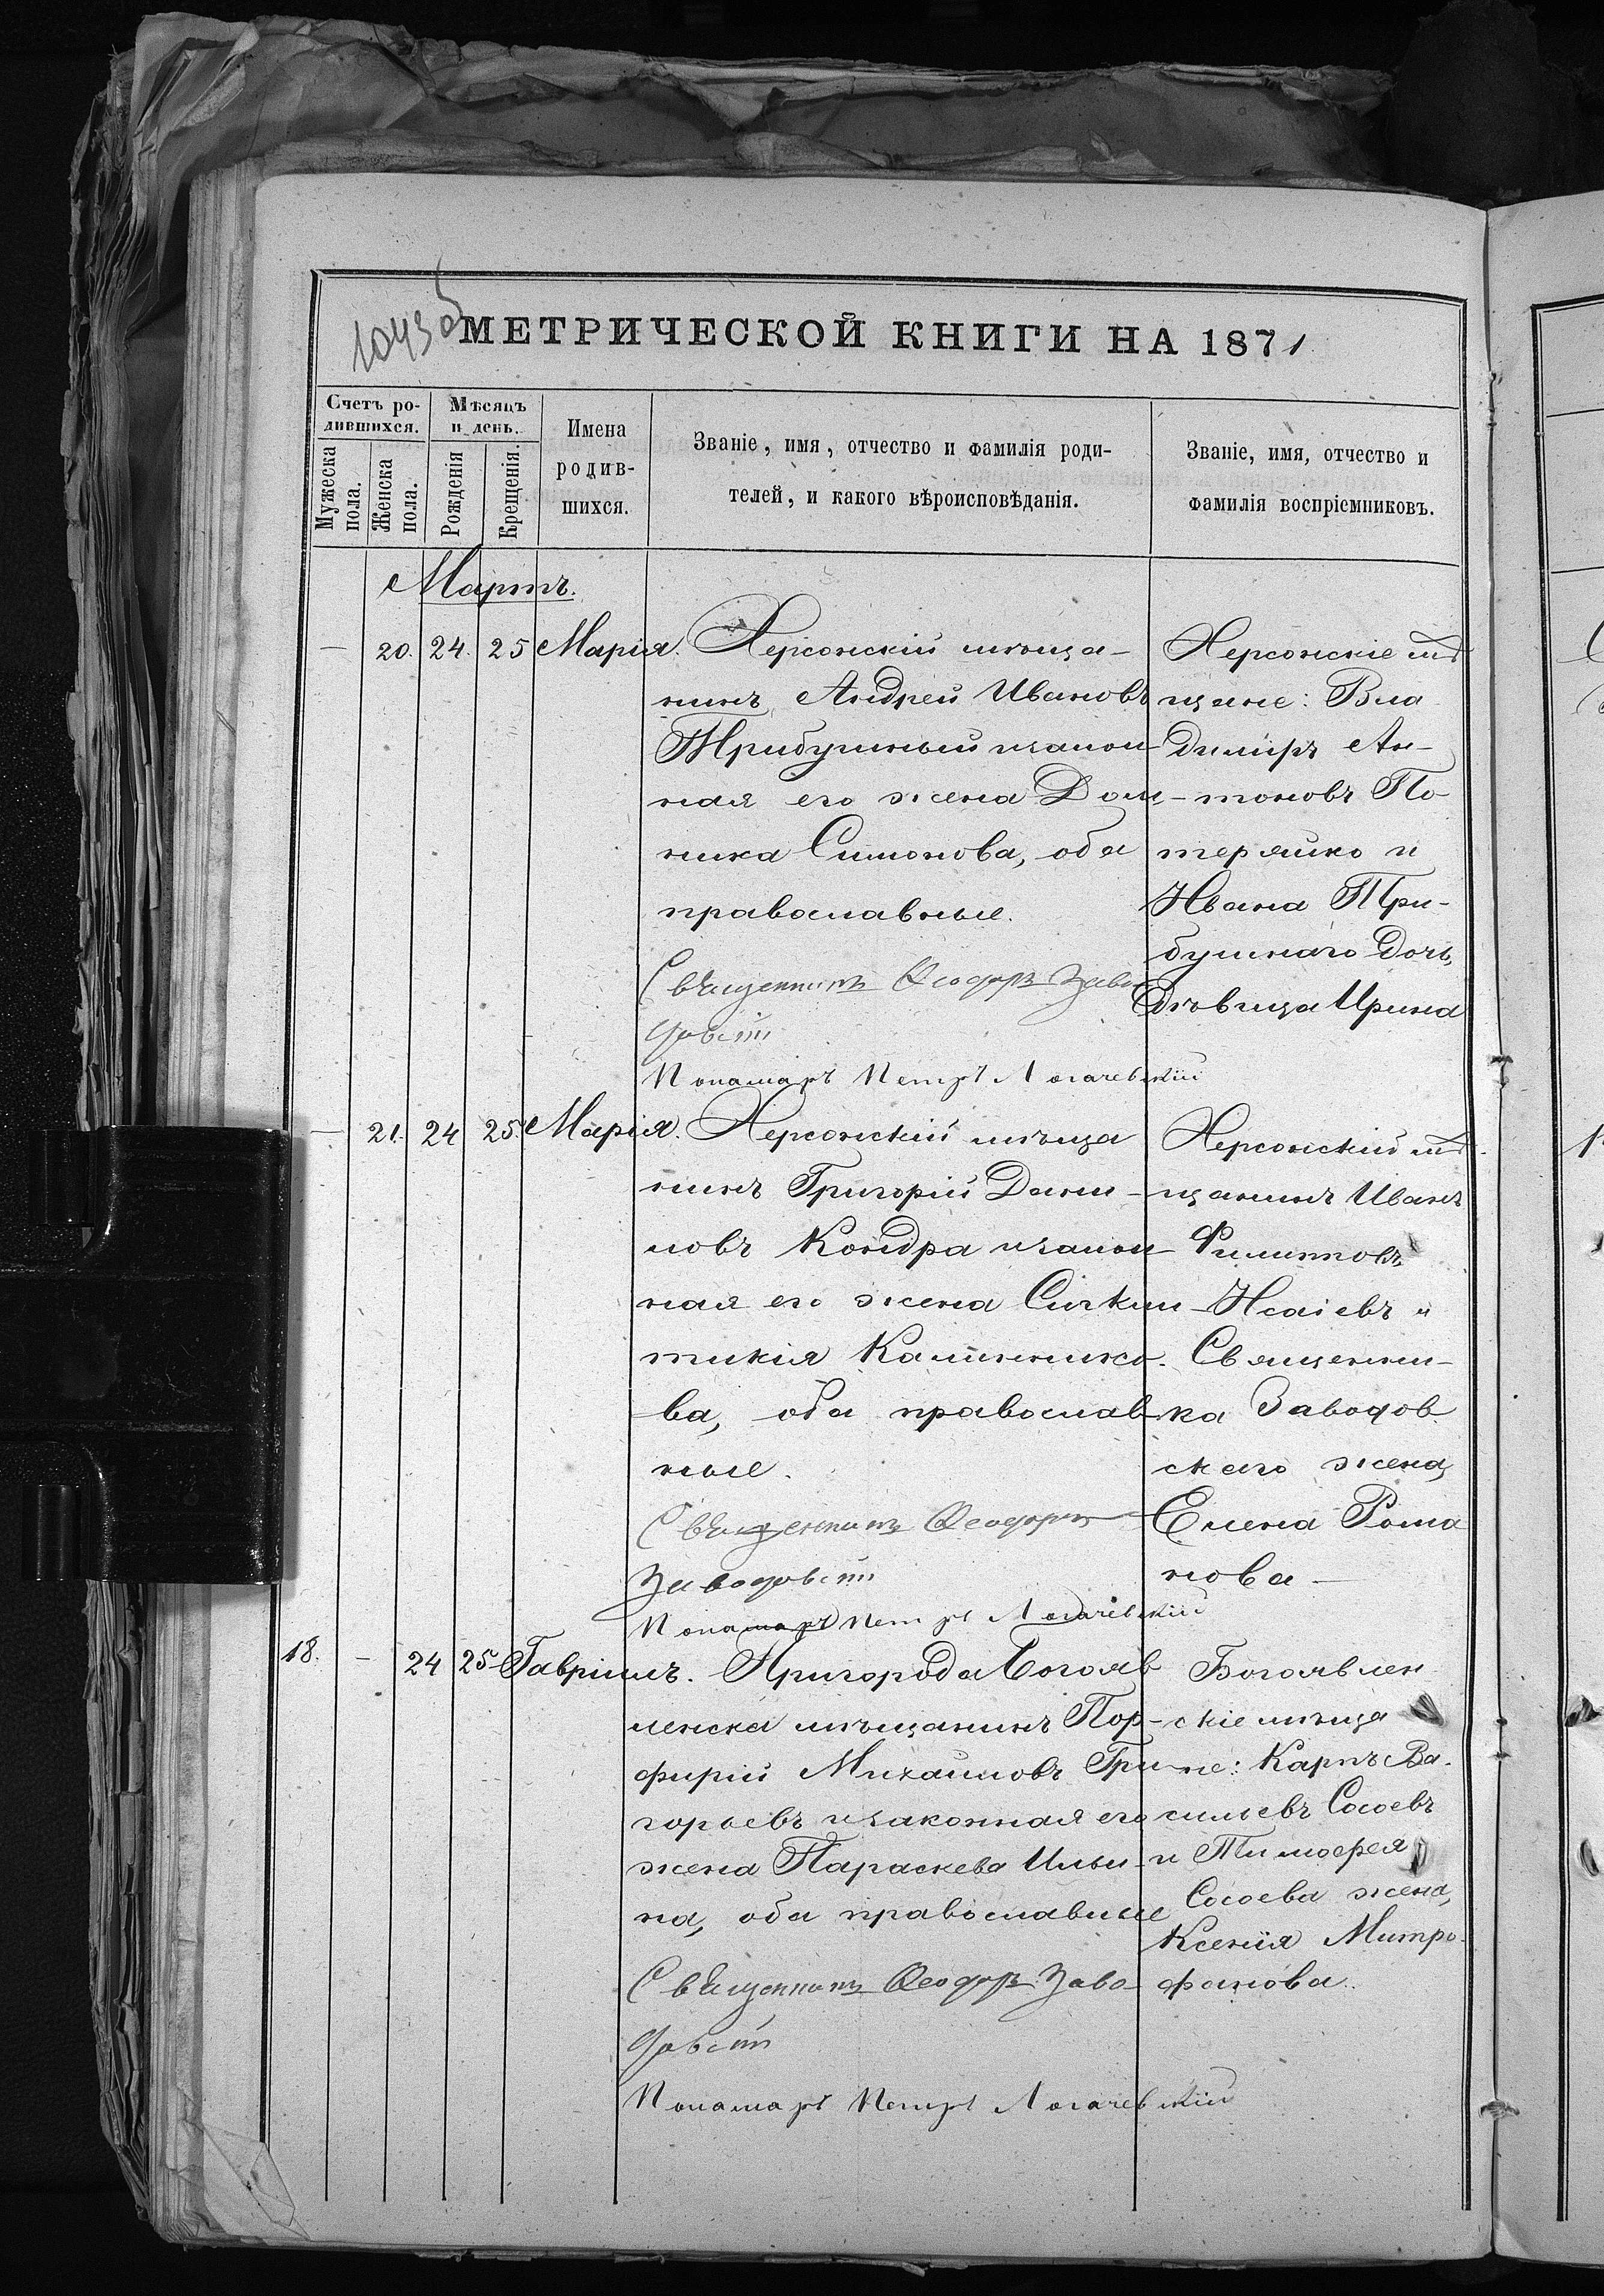 1043 об
МЕТРИЧЕСКОЙ КНИГИ НА 1871
Счетъ ро-
дившихся.
Мужеска
пола.
Женска
пола.
Мѣсяцъ
и день.
Рожденія
Крещенія.
Имена
родив-
шихся.
Званіе, имя, отчество и фамилія роди-
телей, и какого вѣроисповѣданія.
Званіе, имя, отчество и
фамилія воспріемниковъ.
Мартъ.
— 20. 24. 25 Марія.
Херсонскій мѣща-
нинъ Андрей Ивановъ
Трибушный и закон-
ная его жена Дом-
ника Симонова, оба
православные.
Священникъ Ѳеодоръ Заво
довскій
Понамарь Петръ Логачевскій
Херсонскіе мѣ
щане: Вла
димиръ Ан-
тоновъ По-
теряйко и
Ивана Три-
бушнаго дочь,
дѣвица Ирина
— 21. 24 25. Марія.
Херсонскій мѣща
нинъ Григорій Дани-
ловъ Кондра и закон-
ная его жена Сигкли-
тикія Калинико-
ва, оба православ-
ные.
Священникъ Ѳеодоръ
Заводовскій
Понамарь Петръ Логачевскій
Херсонскій мѣ-
щанинъ Иванъ
Филиповъ
Исаіевъ и
Священни-
ка Заводов
скаго жена,
Елена Рома
нова —
18. — 24 25 Гавріилъ.
Пригорода Богояв
ленска мѣщанинъ Пор-
фирій Михайловъ Гри-
горьевъ и законная его
жена Параскева Ильи-
на, оба православные
Священникъ Ѳеодоръ Заво-
довскій
Понамарь Петръ Логачевскій
Богоявлен
скіе мѣща
не: Карпъ Ва-
сильевъ Сосоевъ
и Тимоѳея
Сосоева жена,
Ксенія Митро-
фанова.